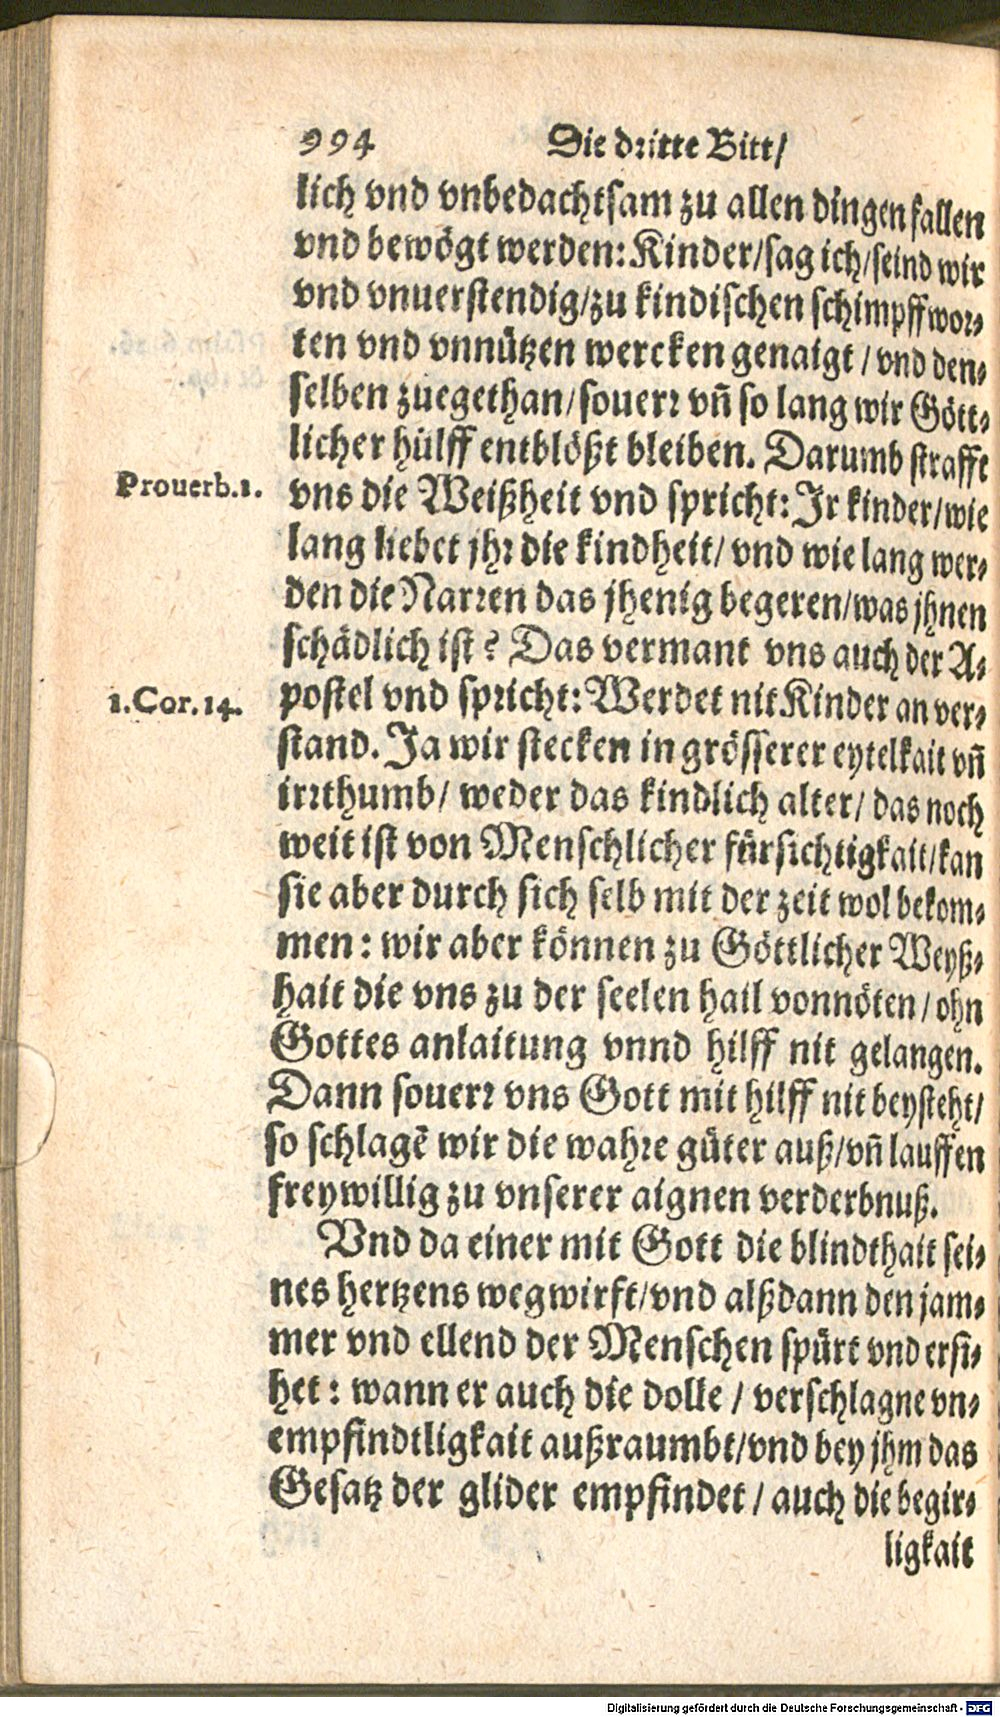 994 Die dritte Bitt/
lich vnd vnbedachtsam zu allen dingen fallen
vnd bewögt werden: Kinder/sag ich/seind wir
vnd vnuerstendig/zu kindischen schimpffwor⸗
ten vnd vnnützen wercken genaigt / vnd den⸗
selben zuegethan/souerr vñ so lang wir Gött⸗
licher hülff entblößt bleiben. Darumb strafft
Prouerb.1. vns die Weißheit vnd spricht: Jr kinder/wie
lang liebet jhr die kindheit/ vnd wie lang wer⸗
den die Narren das jhenig begeren/was jhnen
schädlich ist? Das vermant vns auch der A⸗
1.Cor.14. postel vnd spricht: Werdet nit Kinder an ver⸗
stand. Ja wir stecken in grösserer eytelkait vñ
irrthumb/ weder das kindlich alter/ das noch
weit ist von Menschlicher fürsichtigkait/kan
sie aber durch sich selb mit der zeit wol bekom⸗
men: wir aber können zu Göttlicher Weyß⸗
hait die vns zu der seelen hail vonnöten/ ohn
Gottes anlaitung vnnd hilff nit gelangen.
Dann souerr vns Gott mit hilff nit beysteht/
so schlagẽ wir die wahre güter auß/vñ lauffen
freywillig zu vnserer aignen verderbnuß.
Vnd da einer mit Gott die blindthait sei⸗
nes hertzens wegwirft/vnd alßdann den jam⸗
mer vnd ellend der Menschen spürt vnd ersi⸗
het: wann er auch die dolle / verschlagne vn⸗
empfindtligkait außraumbt/vnd bey jhm das
Gesatz der glider empfindet / auch die begir⸗
ligkait
Digitalisierung gefördert durch die Deutsche Forschungsgemeinschaft - DFG